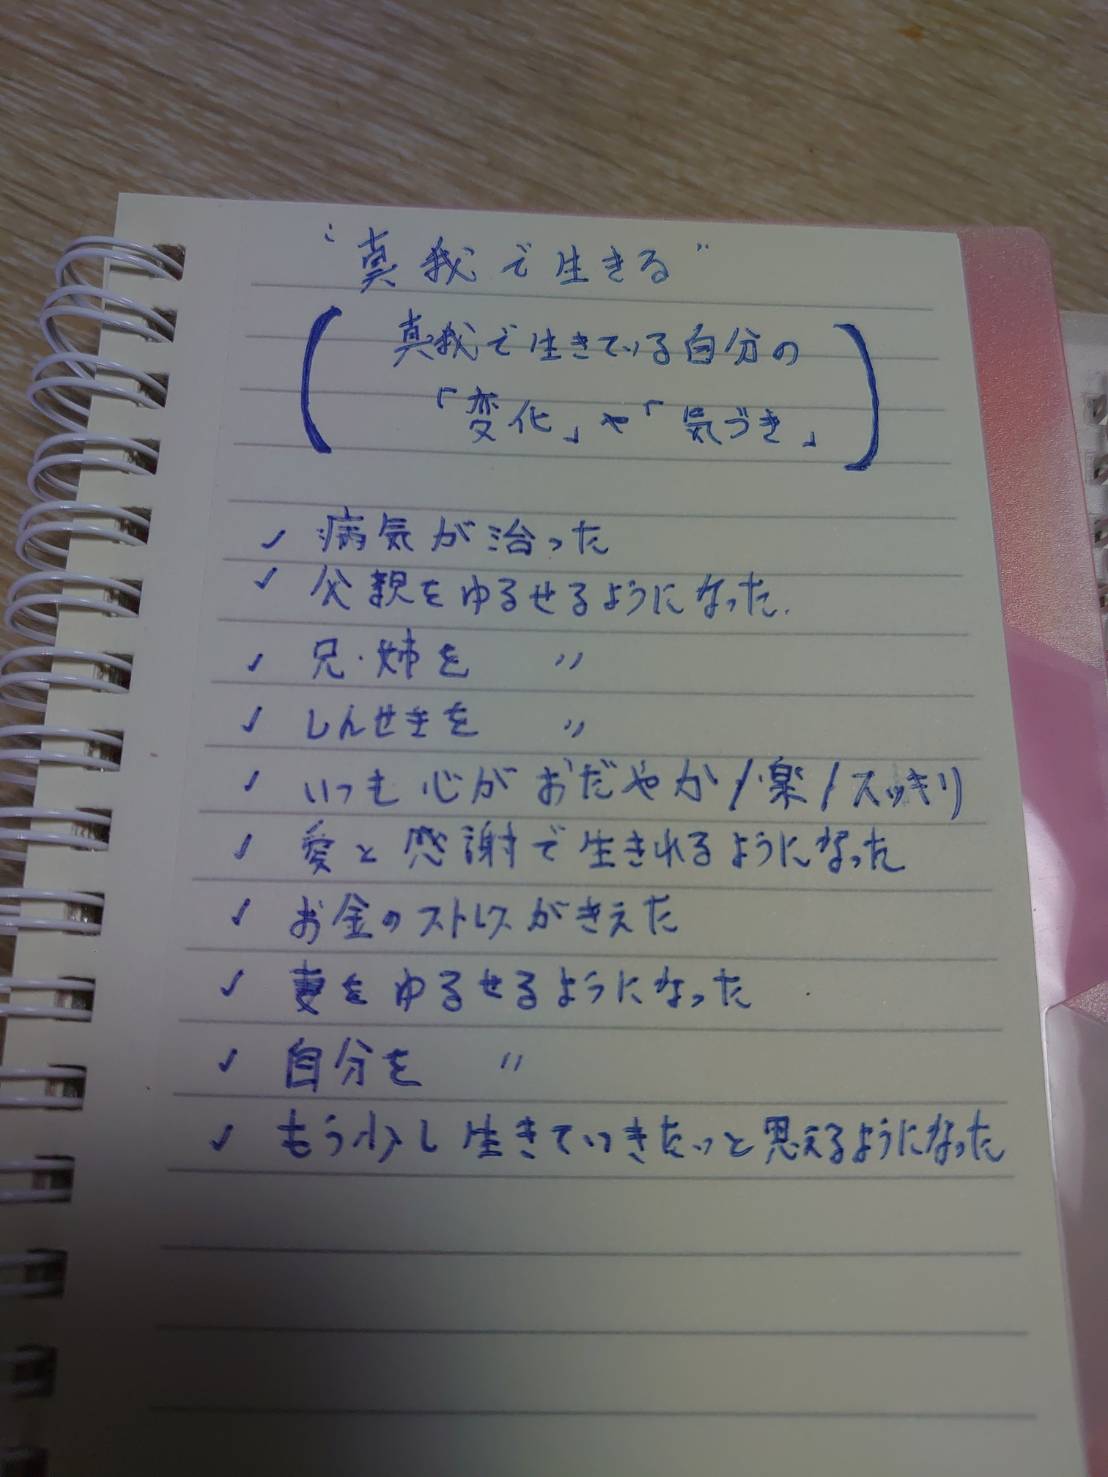 "真我で生きる"
(真我で生きている自分の
「変化」や「気づき」)
✓ 病気が治った
✓ 父親をゆるせるようになった.
✓ 兄・姉を 〃
✓ しんせきを 〃
✓ いつも心がおだやか/楽/スッキリ
✓ 愛と感謝で生きれるようになった
✓ お金のストレスがきえた
✓ 妻をゆるせるようになった
✓ 自分を 〃
✓ もう少し生きていきたいと思えるようになった